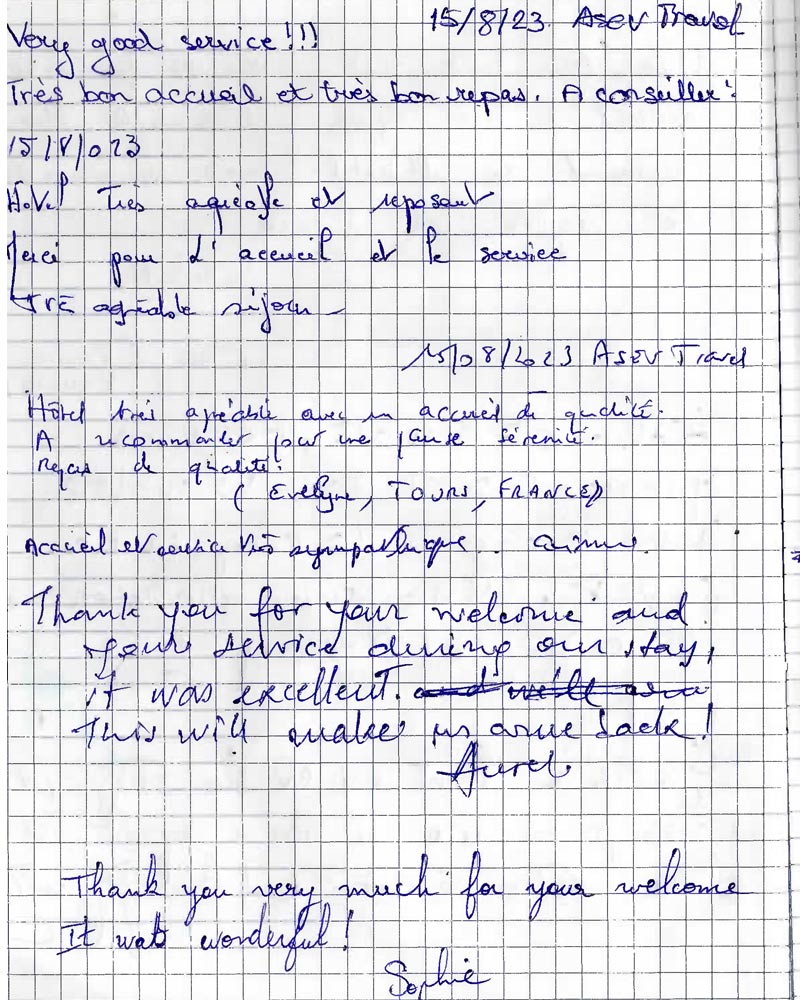 15/8/23. Asev Travel
Very good service!!!
Très bon accueil et très bon repas. A conseiller!
15/8/023
Hôtel très agréable et reposant
Merci pour l'accueil et le service
agréable séjour
15/08/2023 ASEV Travel
Hôtel très agréable avec un accueil de qualité.
A recommander pour une pause sérénité.
Repas de qualité!
(Evelyne, TOURS, FRANCE)
Accueil et service très sympathique..
Thank you for your welcome and
your service during our stay,
it was excellent.
This will make us come back!
Aurel
Thank you very much for your welcome
It was wonderful!
Sophie